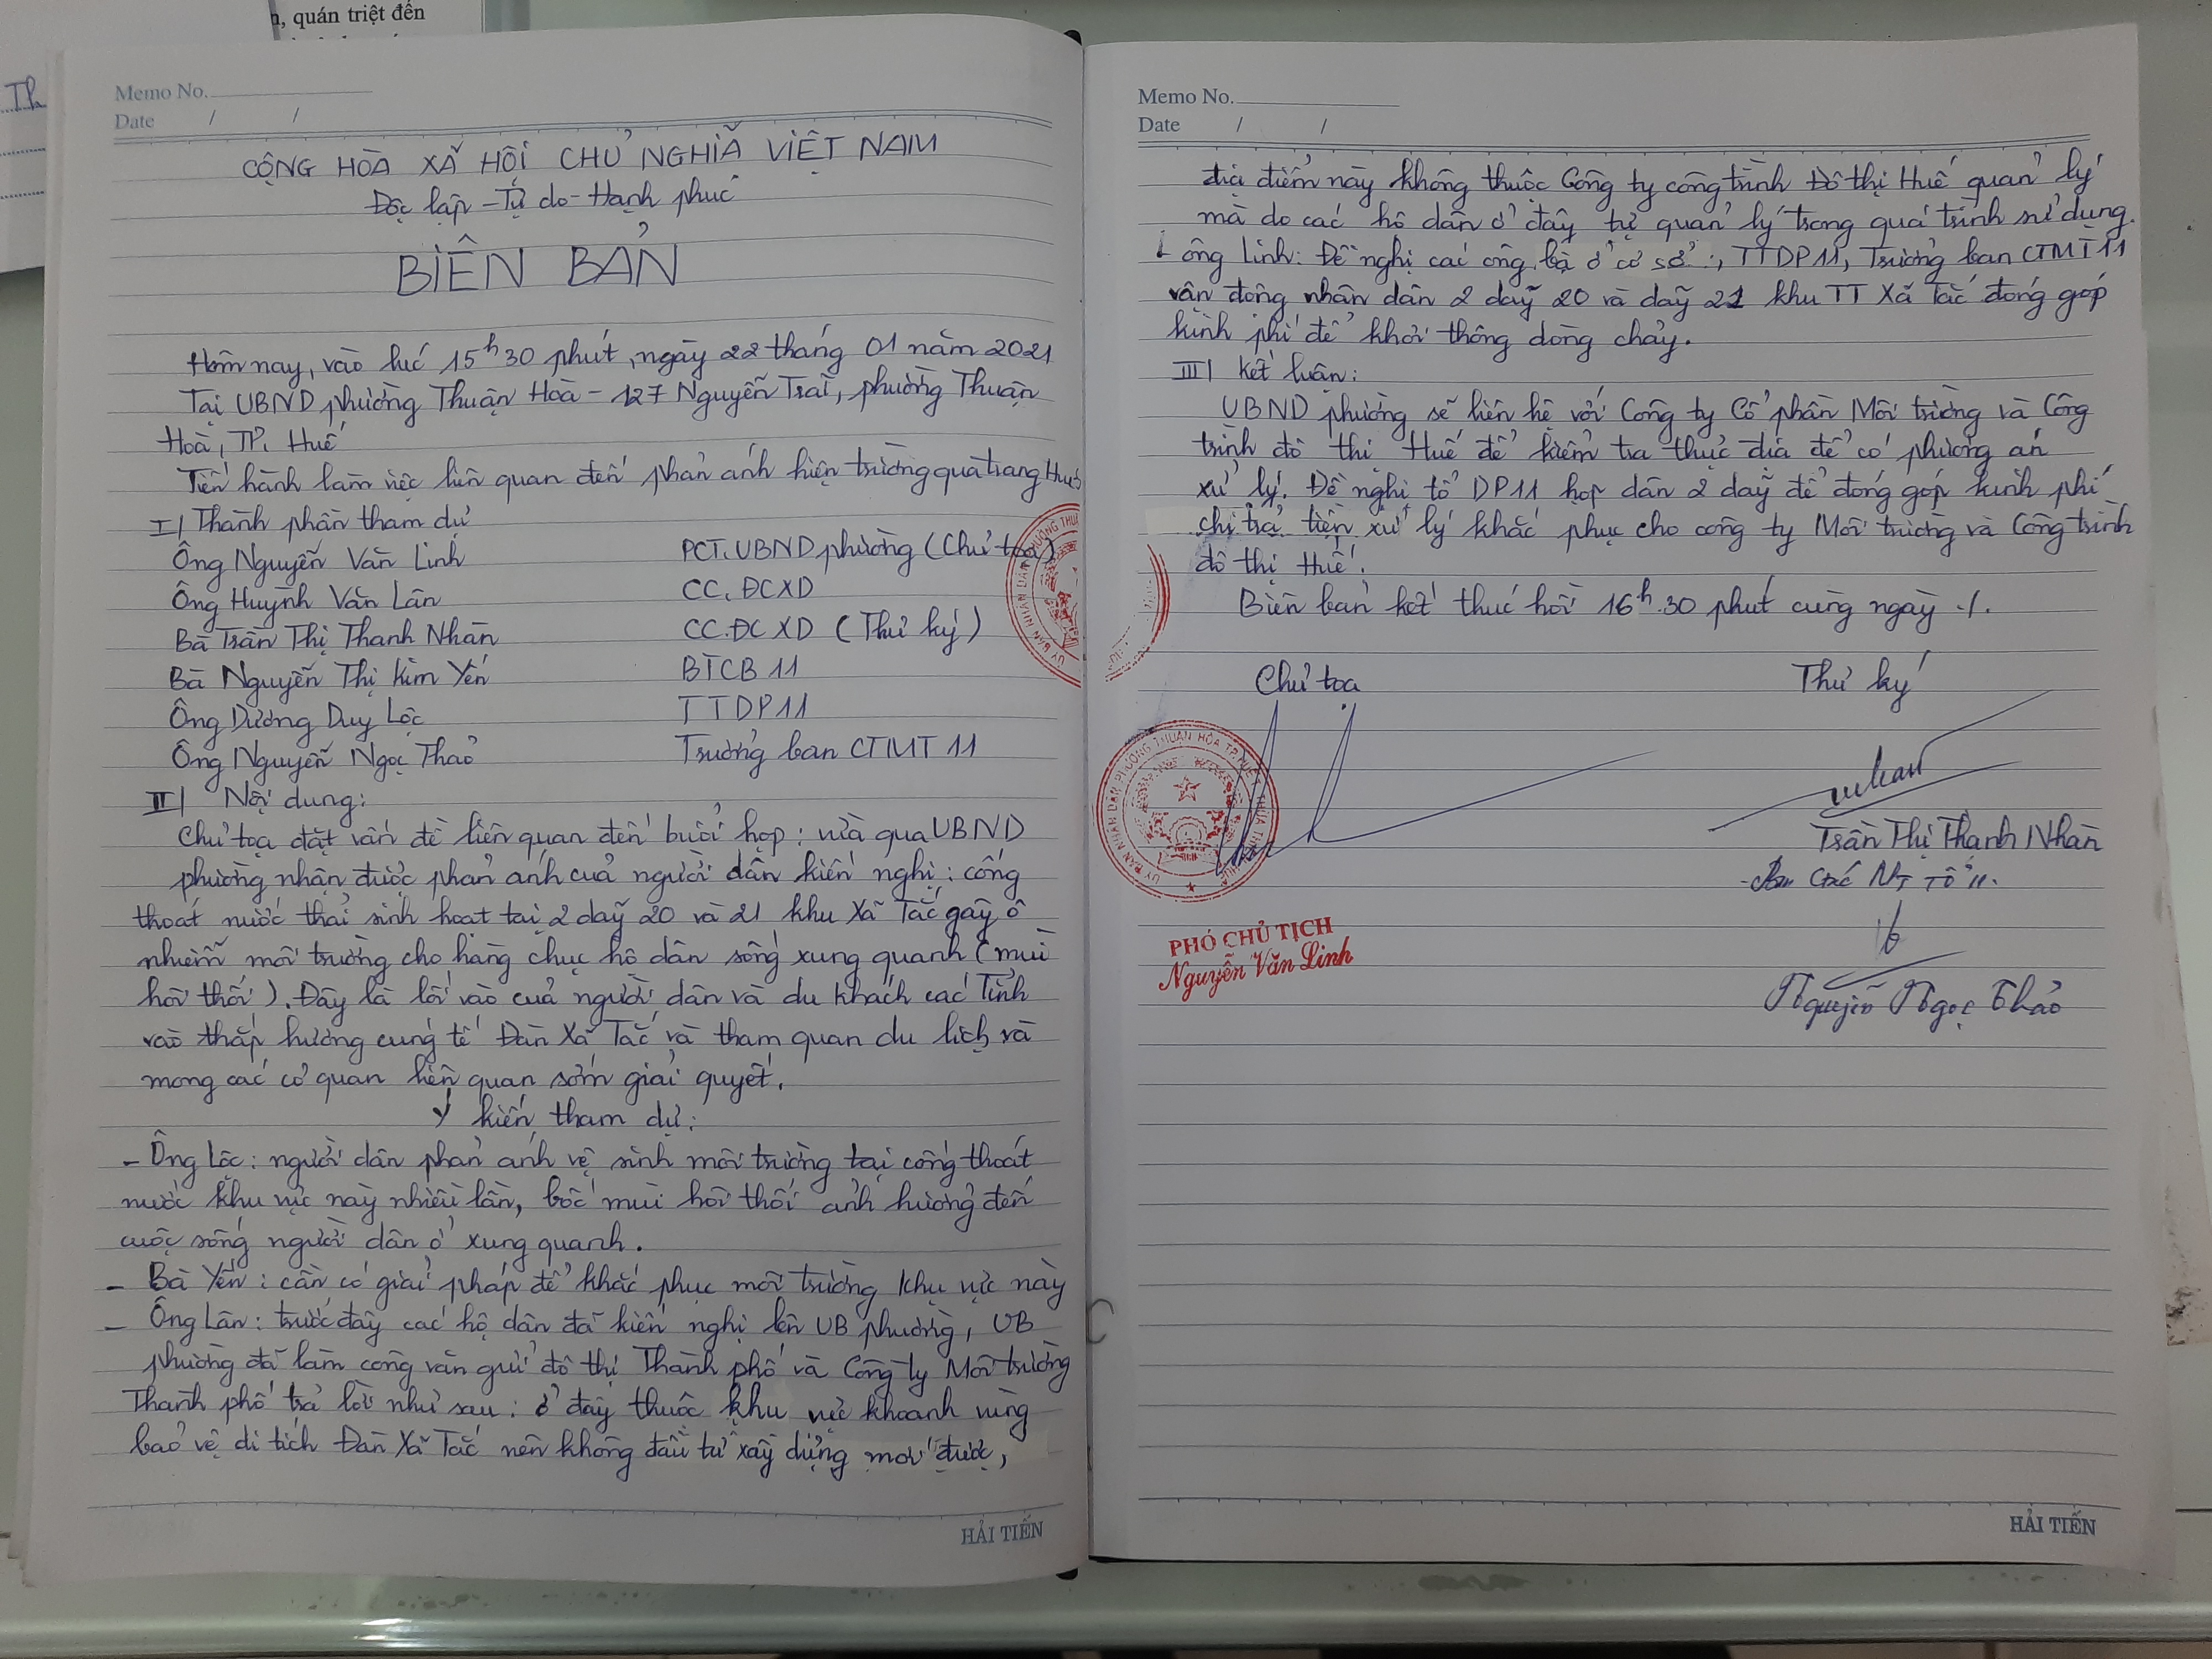 n, quán triệt đến
Th
Memo No.
Date / /
CỘNG HÒA XÃ HỘI CHỦ NGHĨA VIỆT NAM
Độc lập - Tự do - Hạnh phúc
BIÊN BẢN
Hôm nay, vào lúc 15h30 phút, ngày 22 tháng 01 năm 2021
Tại UBND phường Thuận Hoà - 127 Nguyễn Trãi, phường Thuận
Hoà, TP. Huế
Tiến hành làm việc liên quan đến phản ánh hiện trường qua trang HueS
I/ Thành phần tham dự
Ông Nguyễn Văn Linh PCT.UBND phường (Chủ toạ)
Ông Huỳnh Văn Lân CC.ĐCXD
Bà Trần Thị Thanh Nhàn CC.ĐCXD (Thư ký)
Bà Nguyễn Thị Kim Yến BTCB 11
Ông Dương Duy Lộc TTDP11
Ông Nguyễn Ngọc Thảo Trưởng ban CTMT 11
II/ Nội dung:
Chủ tọa đặt vấn đề liên quan đến buổi họp: vừa qua UBND
phường nhận được phản ánh của người dân kiến nghị: cống
thoát nước thải sinh hoạt tại 2 dãy 20 và 21 khu Xã Tắc gây ô
nhiễm môi trường cho hàng chục hộ dân sống xung quanh (mùi
hôi thối). Đây là lối vào của người dân và du khách các Tỉnh
vào thắp hương cúng tế Đàn Xã Tắc và tham quan du lịch và
mong các cơ quan liên quan sớm giải quyết.
Ý kiến tham dự:
- Ông Lộc: người dân phản ánh vệ sinh môi trường tại cống thoát
nước khu vực này nhiều lần, bốc mùi hôi thối ảnh hưởng đến
cuộc sống người dân ở xung quanh.
- Bà Yến: cần có giải pháp để khắc phục môi trường khu vực này
- Ông Lân: trước đây các hộ dân đã kiến nghị lên UB phường, UB
phường đã làm công văn gửi đô thị Thành phố và Công ty Môi trường
Thành phố trả lời như sau: ở đây thuộc khu vực khoanh vùng
bảo vệ di tích Đàn Xã Tắc nên không đầu tư xây dựng mới được,
HẢI TIẾN
Memo No.
Date / /
địa điểm này không thuộc Công ty công trình Đô thị Huế quản lý
mà do các hộ dân ở đây tự quản lý trong quá trình sử dụng.
- Ông Linh: Đề nghị các ông, bà ở cơ sở:, TTDP11, Trưởng ban CTMT 11
vận động nhân dân 2 dãy 20 và dãy 21 khu TT Xã Tắc đóng góp
kinh phí để khơi thông dòng chảy.
III/ Kết luận:
UBND phường sẽ liên hệ với Công ty Cổ phần Môi trường và Công
trình đô thị Huế để kiểm tra thực địa để có phương án
xử lý. Đề nghị tổ DP11 họp dân 2 dãy để đóng góp kinh phí
chi trả tiền xử lý khắc phục cho công ty Môi trường và Công trình
đô thị Huế.
Biên bản kết thúc hồi 16h.30 phút cùng ngày ./.
Chủ tọa Thư ký
Trần Thị Thanh Nhàn
PHÓ CHỦ TỊCH
Nguyễn Văn Linh
Nguyễn Ngọc Thảo
HẢI TIẾN